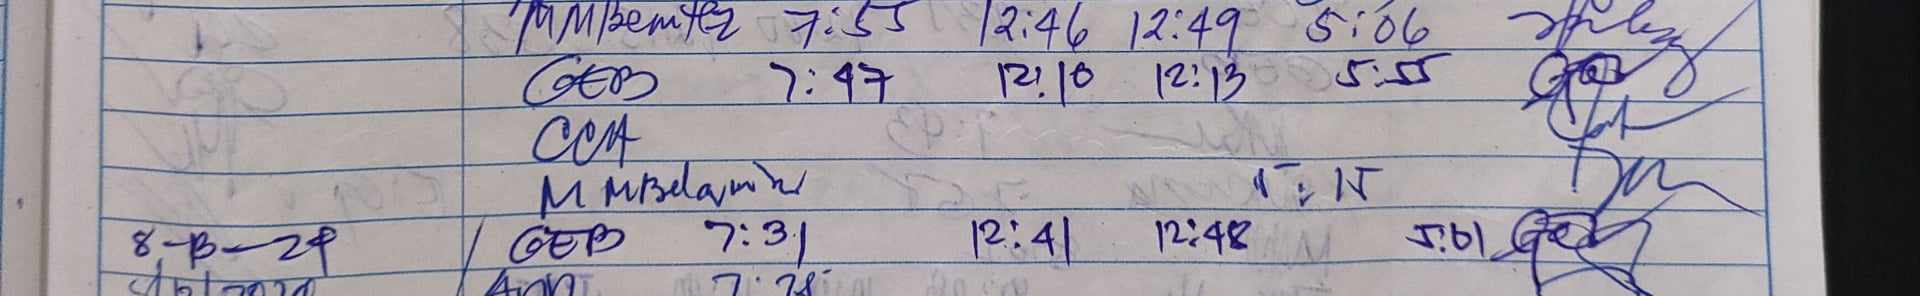 MMBemtez 7:55 12:46 12:49 5:06
GEB 7:47 12:10 12:13 5:55
CCA
MMBelamin 5:15
8-13-24 GEB 7:31 12:41 12:48 5:01
7:28